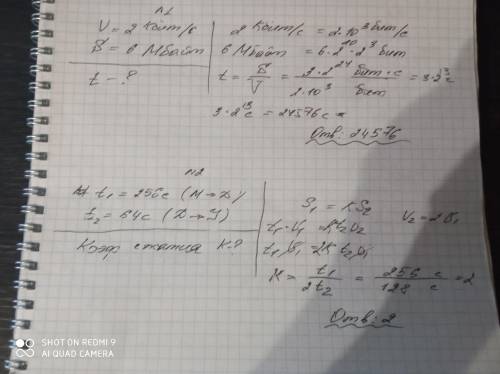 N1
V = 2 Кбит/с
В = 6 Мбайт
t - ?
2 Кбит/с = 2·10³ бит/с
6 Мбайт = 6·2²⁰·2³ бит
t = В/V = 3·2²⁴ бит·с / 2·10³ бит = 3·2 с
3·2¹³ с = 24576 с
Отв: 24576
N2
t₁ = 256 с (М→D)
t₂ = 64 с (D→J)
Коэф сжатия К-?
S₁ = K S₂
V₂ = 2 V₁
t₁·V₁ = K t₂ V₂
t₁ V₁ = 2K t₂ V₁
K = t₁/2t₂ = 256 с/128 с = 2
Отв: 2
SHOT ON REDMI 9
AI QUAD CAMERA